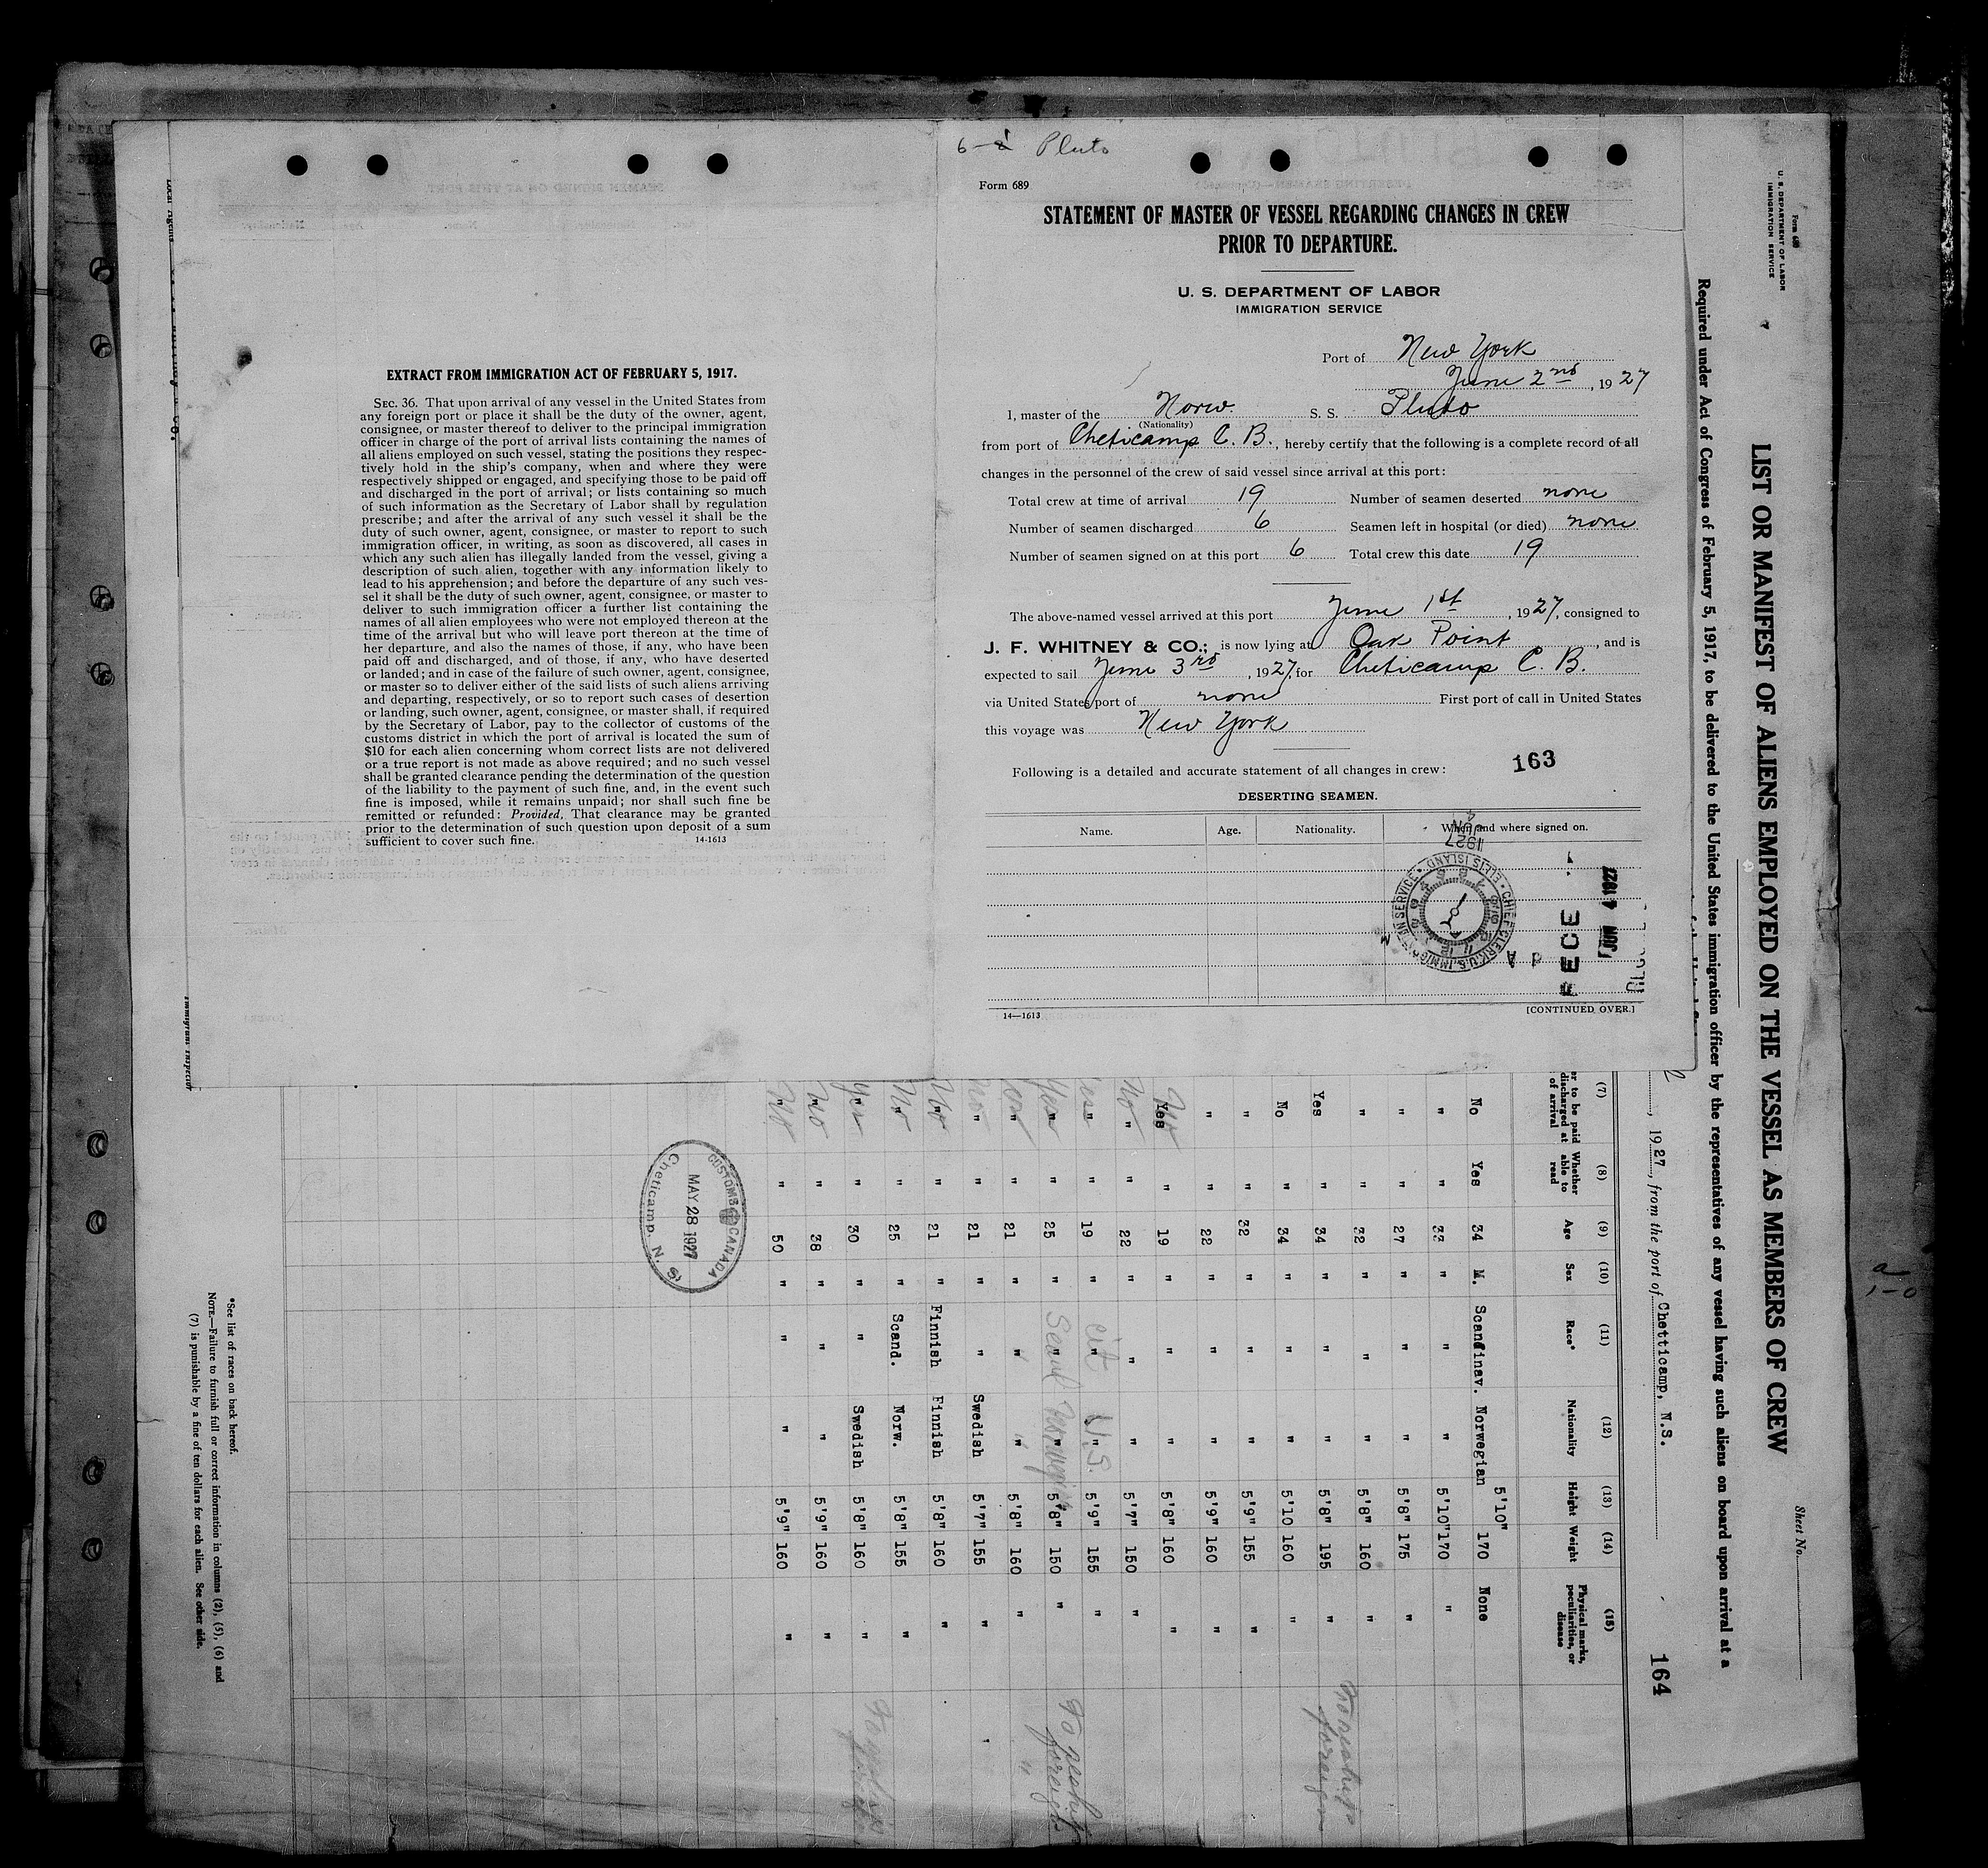 6-8 Pluto
Form 689
STATEMENT OF MASTER OF VESSEL REGARDING CHANGES IN CREW
PRIOR TO DEPARTURE.
U. S. DEPARTMENT OF LABOR
IMMIGRATION SERVICE
Port of New York
June 2nd, 1927
I, master of the Norw. S. S. Pluto
(Nationality)
from port of Cheticamp C. B., hereby certify that the following is a complete record of all
changes in the personnel of the crew of said vessel since arrival at this port:
Total crew at time of arrival 19 Number of seamen deserted none
Number of seamen discharged 6 Seamen left in hospital (or died) none
Number of seamen signed on at this port 6 Total crew this date 19
The above-named vessel arrived at this port June 1st, 1927, consigned to
J. F. WHITNEY & CO.; is now lying at Oak Point, and is
expected to sail June 3rd, 1927, for Cheticamp C. B.
via United States port of none First port of call in United States
this voyage was New York
Following is a detailed and accurate statement of all changes in crew: 163
DESERTING SEAMEN.
Name. Age. Nationality. When and where signed on.
JUN 4 1927
CHIEF CLERK, U.S. IMMIGRATION SERVICE • ELLIS ISLAND •
JUN 4 1927
14—1613 [CONTINUED OVER.]
EXTRACT FROM IMMIGRATION ACT OF FEBRUARY 5, 1917.
SEC. 36. That upon arrival of any vessel in the United States from
any foreign port or place it shall be the duty of the owner, agent,
consignee, or master thereof to deliver to the principal immigration
officer in charge of the port of arrival lists containing the names of
all aliens employed on such vessel, stating the positions they respec-
tively hold in the ship's company, when and where they were
respectively shipped or engaged, and specifying those to be paid off
and discharged in the port of arrival; or lists containing so much
of such information as the Secretary of Labor shall by regulation
prescribe; and after the arrival of any such vessel it shall be the
duty of such owner, agent, consignee, or master to report to such
immigration officer, in writing, as soon as discovered, all cases in
which any such alien has illegally landed from the vessel, giving a
description of such alien, together with any information likely to
lead to his apprehension; and before the departure of any such ves-
sel it shall be the duty of such owner, agent, consignee, or master to
deliver to such immigration officer a further list containing the
names of all alien employees who were not employed thereon at the
time of the arrival but who will leave port thereon at the time of
her departure, and also the names of those, if any, who have been
paid off and discharged, and of those, if any, who have deserted
or landed; and in case of the failure of such owner, agent, consignee,
or master so to deliver either of the said lists of such aliens arriving
and departing, respectively, or so to report such cases of desertion
or landing, such owner, agent, consignee, or master shall, if required
by the Secretary of Labor, pay to the collector of customs of the
customs district in which the port of arrival is located the sum of
$10 for each alien concerning whom correct lists are not delivered
or a true report is not made as above required; and no such vessel
shall be granted clearance pending the determination of the question
of the liability to the payment of such fine, and, in the event such
fine is imposed, while it remains unpaid; nor shall such fine be
remitted or refunded: Provided, That clearance may be granted
prior to the determination of such question upon deposit of a sum
sufficient to cover such fine. 14-1613
Form 680
U. S. DEPARTMENT OF LABOR
IMMIGRATION SERVICE
Sheet No.
LIST OR MANIFEST OF ALIENS EMPLOYED ON THE VESSEL AS MEMBERS OF CREW
Required under Act of Congress of February 5, 1917, to be delivered to the United States immigration officer by the representatives of any vessel having such aliens on board upon arrival at a
, 1927, from the port of Chetticamp, N.S. 164
(7) (8) (9) (10) (11) (12) (13) (14) (15)
er to be paid discharged at of arrival Whether able to read Age Sex Race* Nationality Height Weight Physical marks, peculiarities, or disease
No Yes 34 M. Scandinav. Norwegian 5'10" 170 None
" " 33 " " " 5'10" 170 "
" " 27 " " " 5'8" 175 "
" " 32 " " " 5'8" 160 "
Yes " 34 " " " 5'8" 195 "
No " 34 " " " 5'10 160 "
" " 32 " " " 5'9" 155 "
" " 22 " " " 5'9" 160 "
Yes No " 19 " " " 5'8" 160 "
" No " 22 " " " 5'7" 150 "
" Yes " 19 " " cit " U.S. 5'9" 155 "
" Yes " 25 " " Scand " Norwegian 5'8" 150 " To reship foreign
" " 21 " " " 5'8" 160 " "
" No " 21 " " Swedish 5'7" 155 "
" No " 21 " Finnish Finnish 5'8" 160 "
" No " 25 " Scand. Norw. 5'8" 155 "
" Yes " 30 " " Swedish 5'8" 160 "
" No " 38 " " " 5'9" 160 "
" No " 50 " " " 5'9" 160 "
To reship foreign
CUSTOMS CANADA
MAY 28 1927
Cheticamp, N. S.
*See list of races on back hereof.
NOTE.—Failure to furnish full or correct information in columns (2), (5), (6) and
(7) is punishable by a fine of ten dollars for each alien. See other side.
Immigrant Inspector